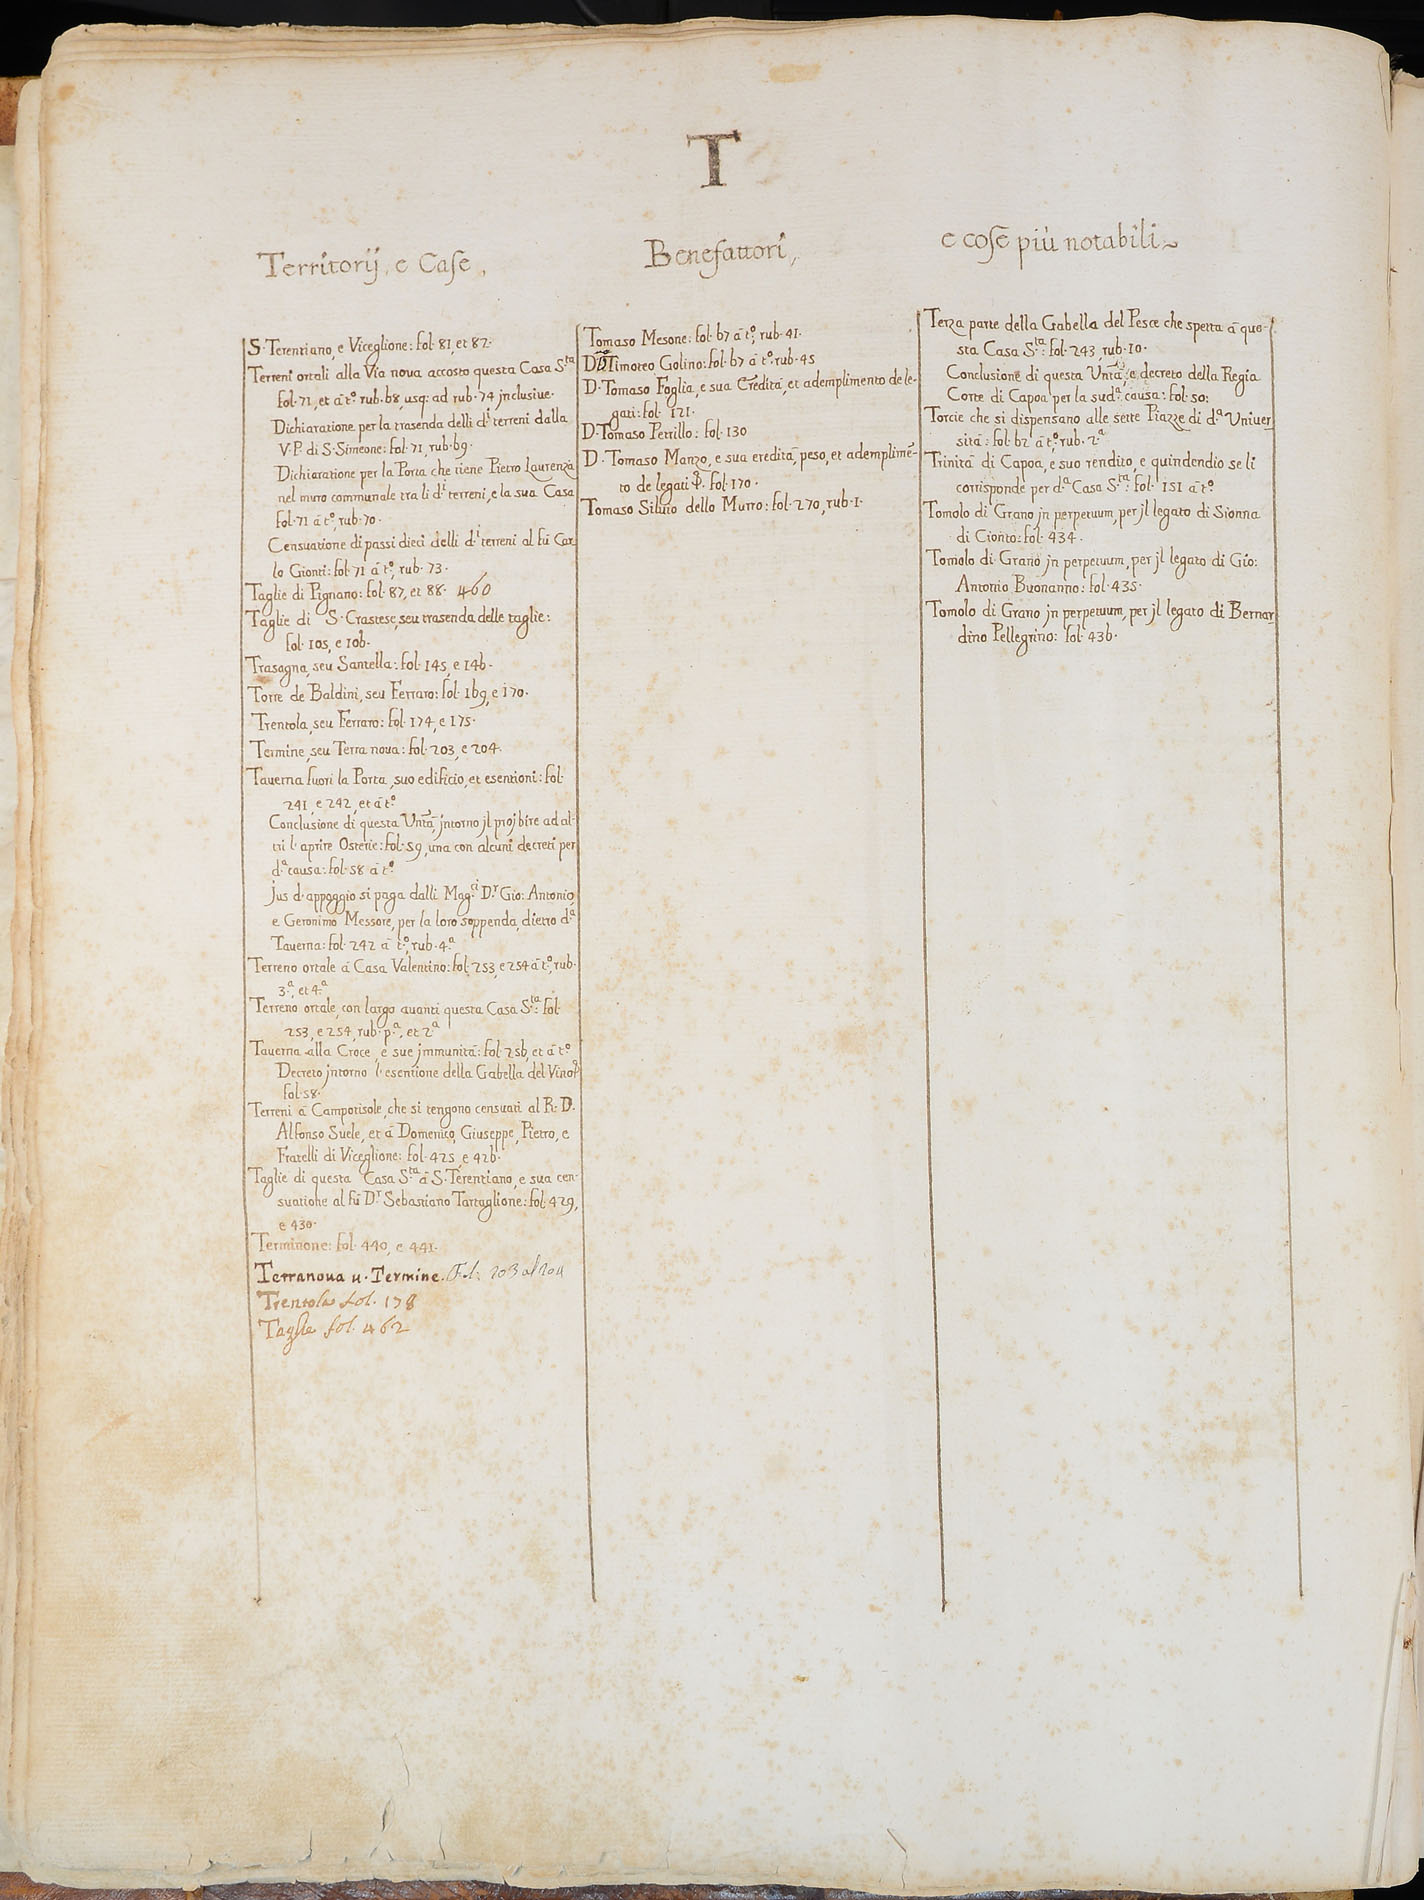 T
Territorij, e Case,
S. Terentiano, e Viceglione: fol. 81, et 82.
Terreni ortali alla Via nova accosto questa Casa S.ta
fol. 71, et à t.º rub. 68, usq: ad rub. 74 jnclusive.
Dichiaratione per la trasenda delli d.i terreni dalla
V. P. di S. Simeone: fol. 71, rub. 69.
Dichiaratione per la Porta che tiene Pietro Laurenza
nel muro communale tra li d.i terreni, e la sua Casa
fol. 71 à t.º, rub. 70.
Censuatione di passi dieci delli d.i terreni al fù Car
lo Gionti: fol. 71 à t.º, rub. 73.
Taglie di Pignano: fol. 87, et 88. 460
Taglie di S. Crastese, seu trasenda delle taglie:
fol. 105, e 106.
Trasagna, seu Santella: fol. 145, e 146.
Torre de Baldini, seu Ferraro: fol. 169, e 170.
Trentola, seu Ferraro: fol. 174, e 175.
Termine, seu Terra nova: fol. 203, e 204.
Taverna fuori la Porta, suo edificio, et esentioni: fol.
241, e 242, et à t.º
Conclusione di questa Untà, jntorno jl projbire ad al-
tri l'aprire Osterie: fol. 59, una con alcuni decreti per
d.a causa: fol. 58 à t.º
Jus d'appoggio si paga dalli Mag.ci D.r Gio: Antonio,
e Geronimo Messore, per la loro soppenda, dietro d.a
Taverna: fol. 242 à t.º, rub. 4.a
Terreno ortale à Casa Valentino: fol. 253, e 254 à t.º, rub.
3.a, et 4.a
Terreno ortale, con largo avanti questa Casa S.ta: fol.
253, e 254, rub. p.a, et 2.a
Taverna alla Croce, e sue jmmunità: fol. 256, et à t.º
Decreto jntorno l'esentione della Gabella del Vino
fol. 58.
Terreni à Camporisole, che si tengono censuati al R: D.
Alfonso Suele, et à Domenico, Giuseppe, Pietro, e
Fratelli di Viceglione: fol. 425, e 426.
Taglie di questa Casa S.ta à S. Terentiano, e sua cen-
suatione al fù D.r Sebastiano Tartaglione: fol. 429,
e 430.
Terminone: fol. 440, e 441.
Terranova u. Termine. Fol: 203 al 204
Trentola fol. 178
Taglie fol. 462
Benefattori,
Tomaso Mesone: fol. 67 à t.º, rub. 41.
D. Timoteo Golino: fol. 67 à t.º rub. 45
D. Tomaso Foglia, e sua Eredità, et adempimento de le-
gati: fol. 121.
D. Tomaso Petrillo: fol. 130
D. Tomaso Manzo, e sua eredità, peso, et adempimen-
to de legati fol. 170.
Tomaso Silvio dello Murro: fol. 270, rub. 1.
e cose più notabili
Terza parte della Gabella del Pesce che spetta à que-
sta Casa S.ta: fol. 243, rub. 10.
Conclusione di questa Untà, e decreto della Regia
Corte di Capoa per la sud.a causa: fol. 50:
Torcie che si dispensano alle sette Piazze di d.a Univer
sità: fol. 62 à t.º, rub. 2.a
Trinità di Capoa, e suo rendito, e quindendio se li
corrisponde per d.a Casa S.ta: fol. 151 à t.º
Tomolo di Grano jn perpetuum, per jl legato di Sionna
di Cionto: fol. 434.
Tomolo di Grano jn perpetuum, per jl legato di Gio:
Antonio Buonanno: fol. 435.
Tomolo di Grano jn perpetuum, per jl legato di Bernar
dino Pellegrino: fol. 436.